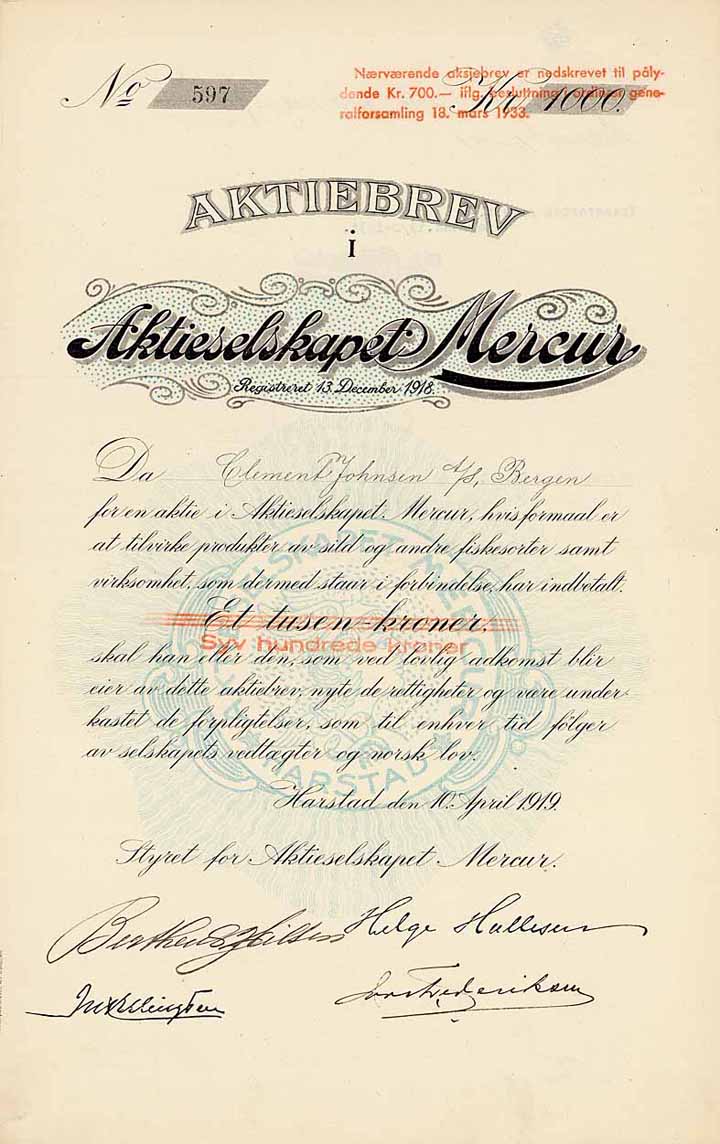 No 597
Nærværende aksjebrev er nedskrevet til påly-
dende Kr. 700.— iflg. beslutning i ordinær gene-
ralforsamling 18. mars 1933.
Kr. 1000.
AKTIEBREV
I
Aktieselskapet Mercur
Registreret 13. December 1918.
Da Clement Johnsen A/S, Bergen
for en aktie i Aktieselskapet Mercur, hvis formaal er
at tilvirke produkter av sild og andre fiskesorter samt
virksomhet, som dermed staar i forbindelse, har indbetalt.
Et tusen kroner,
Syv hundrede kroner
skal han eller den, som ved lovlig adkomst blir
eier av dette aktiebrev, nyte de rettigheter og være under-
kastet de forpligtelser, som til enhver tid følger
av selskapets vedtægter og norsk lov.
AKTIESELSKAPET MERCUR
HARSTAD
Harstad den 10. April 1919.
Styret for Aktieselskapet Mercur.
Helge Hallesen
Frederiksen